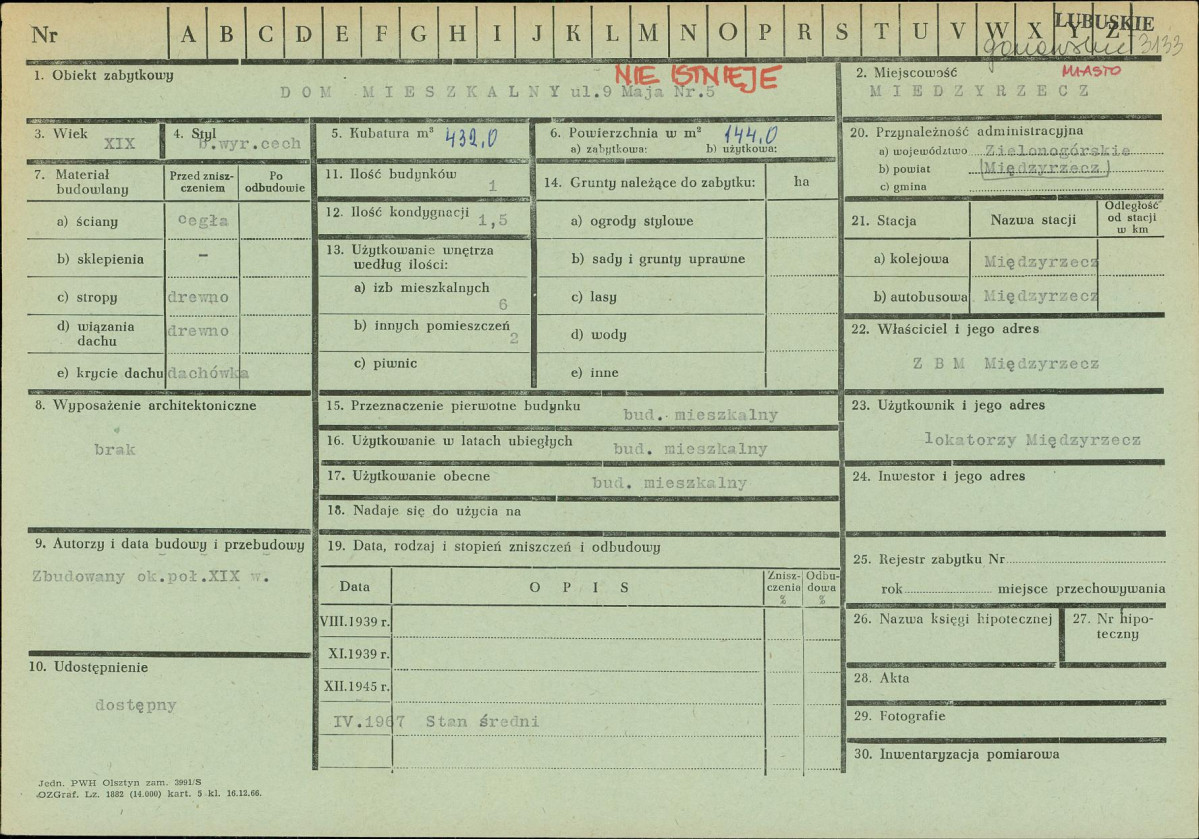 Nr A B C D E F G H I J K L M N O P R S T U V W X Y Z LUBUSKIE
3133
1. Obiekt zabytkowy
NIE ISTNIEJE
DOM MIESZKALNY ul.9 Maja Nr.5
2. Miejscowość
MIASTO
MIEDZYRZECZ
3. Wiek
XIX
4. Styl
b.wyr.cech
5. Kubatura m³ 432,0
6. Powierzchnia w m² 144,0
a) zabytkowa: b) użytkowa:
7. Materiał budowlany
Przed zniszczeniem
Po odbudowie
a) ściany cegła
b) sklepienia -
c) stropy drewno
d) wiązania dachu drewno
e) krycie dachu dachówka
8. Wyposażenie architektoniczne
brak
9. Autorzy i data budowy i przebudowy
Zbudowany ok.poł.XIX w.
10. Udostępnienie
dostępny
11. Ilość budynków
1
12. Ilość kondygnacji
1,5
13. Użytkowanie wnętrza
według ilości:
a) izb mieszkalnych
6
b) innych pomieszczeń
2
c) piwnic
14. Grunty należące do zabytku: ha
a) ogrody stylowe
b) sady i grunty uprawne
c) lasy
d) wody
e) inne
15. Przeznaczenie pierwotne budynku bud. mieszkalny
16. Użytkowanie w latach ubiegłych bud. mieszkalny
17. Użytkowanie obecne bud. mieszkalny
18. Nadaje się do użycia na
19. Data, rodzaj i stopień zniszczeń i odbudowy
Data OPIS Zniszczenia % Odbudowa %
VIII.1939 r.
XI.1939 r.
XII.1945 r.
IV.1967 Stan średni
20. Przynależność administracyjna
a) województwo Zielonogórskie
b) powiat Międzyrzecz
c) gmina
21. Stacja Nazwa stacji Odległość od stacji w km
a) kolejowa Międzyrzecz
b) autobusowa Międzyrzecz
22. Właściciel i jego adres
Z B M Międzyrzecz
23. Użytkownik i jego adres
lokatorzy Międzyrzecz
24. Inwestor i jego adres
25. Rejestr zabytku Nr
rok miejsce przechowywania
26. Nazwa księgi hipotecznej
27. Nr hipoteczny
28. Akta
29. Fotografie
30. Inwentaryzacja pomiarowa
Jedn. PWH Olsztyn zam. 3991/S
OZGraf. Lz. 1882 (14.000) kart. 5 kl. 16.12.66.